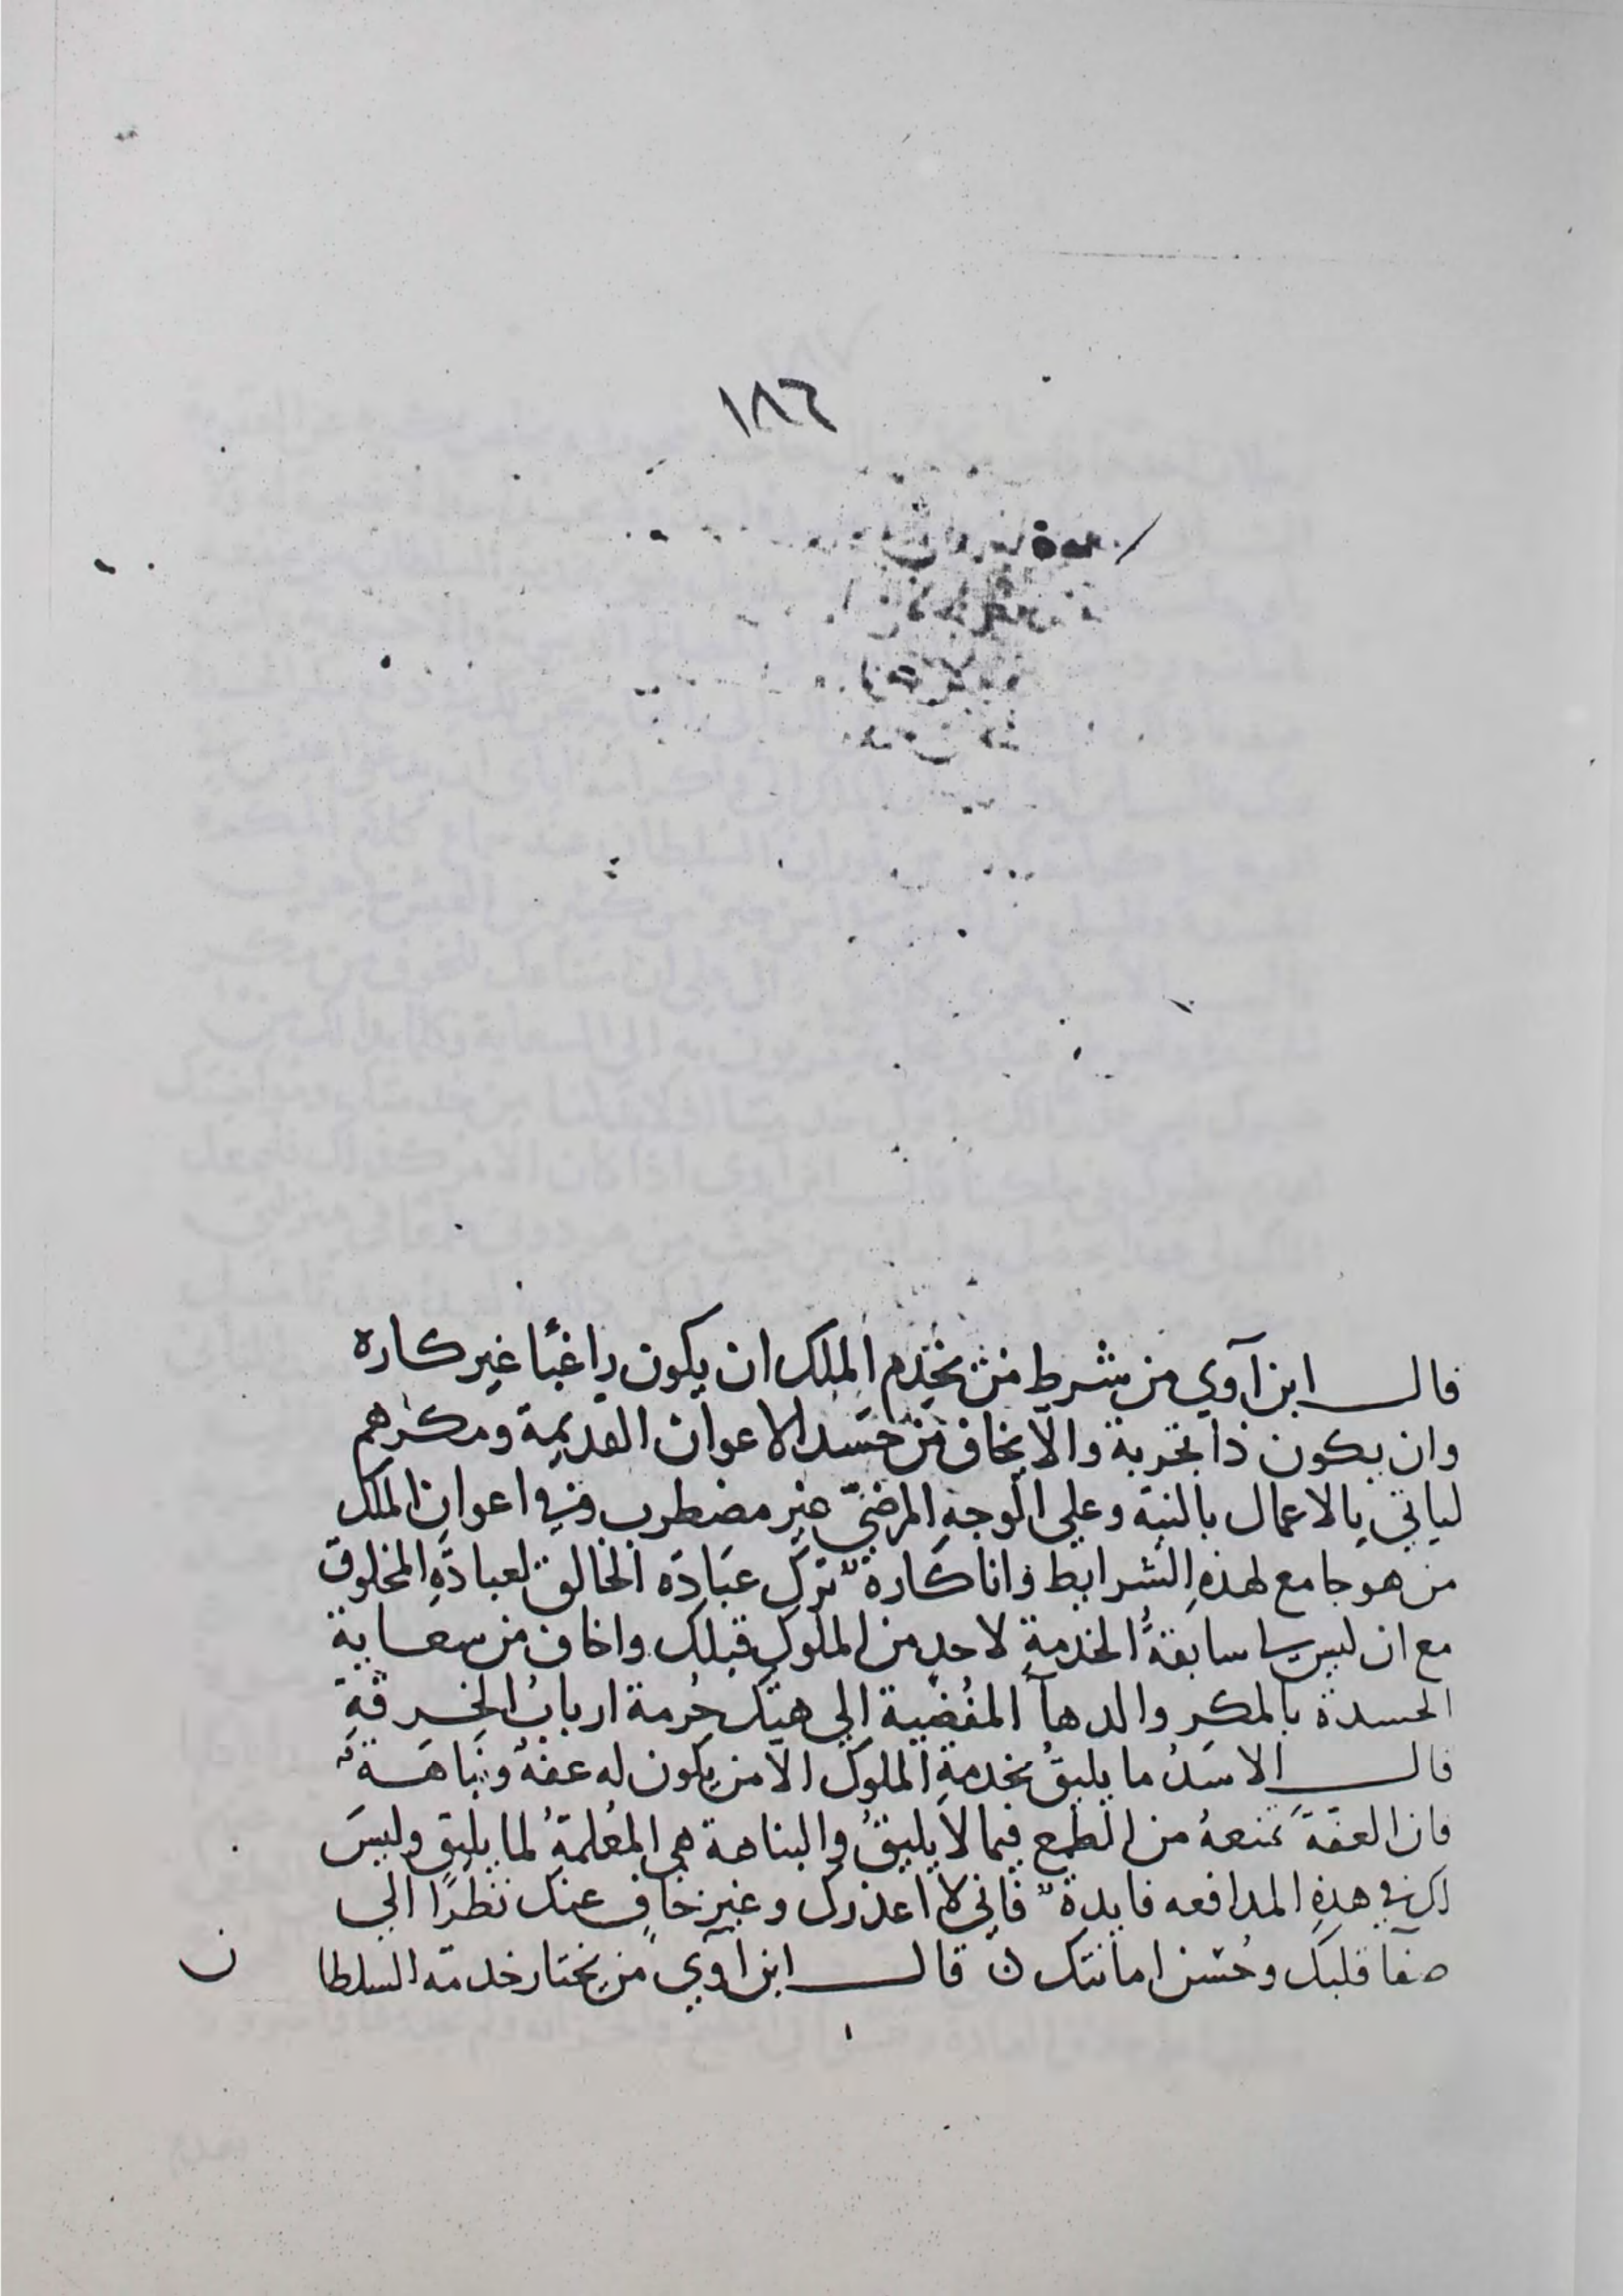 ١٨٦
قال ابن آوي من شرط من يخدم الملك ان يكون راغبًا غير كاره
وان يكون ذا تجربة والا يخاف من حسد الاعوان القديمة ومكرهم
لياتي بالاعمال بالنية وعلي الوجهِ المرضيّ غير مضطرب وفي اعوان الملك
من هو جامع لهذهِ الشرايط وانا كاره ترك عبادَه الخالق لعبادَةِ المخلوق
مع ان ليس لي سابقةُ الخدمةِ لاحدٍ من الملوكِ قبلك واخاف من سعاية
الحسدة بالمكر والدهآ المفُضية الي هتك حُرمة اربابُ الخِرقةِ
قال الاسَدُ ما يليقُ بخدمةِ الملوك الا من يكون له عفة ونباهة
فان العفةَ تمنعهُ من الطمع فيما لا يليقُ والنباهة هي المُعلمةُ لما يليق وليسَ
لك في هذهِ المدافعه فايدة فاني لا اعذرك وغير خافٍ عنك نظرًا الي
صفآ قلبك وحُسن امانتك ن قال ابن آوي من يختار خدمة السلطا ن